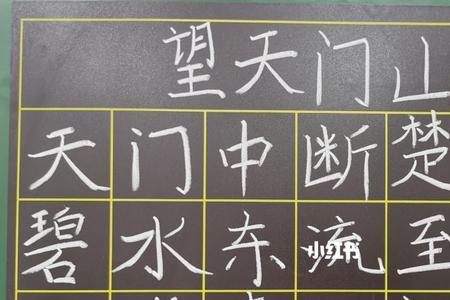 望天门山
天门中断楚
碧水东流至
小红书